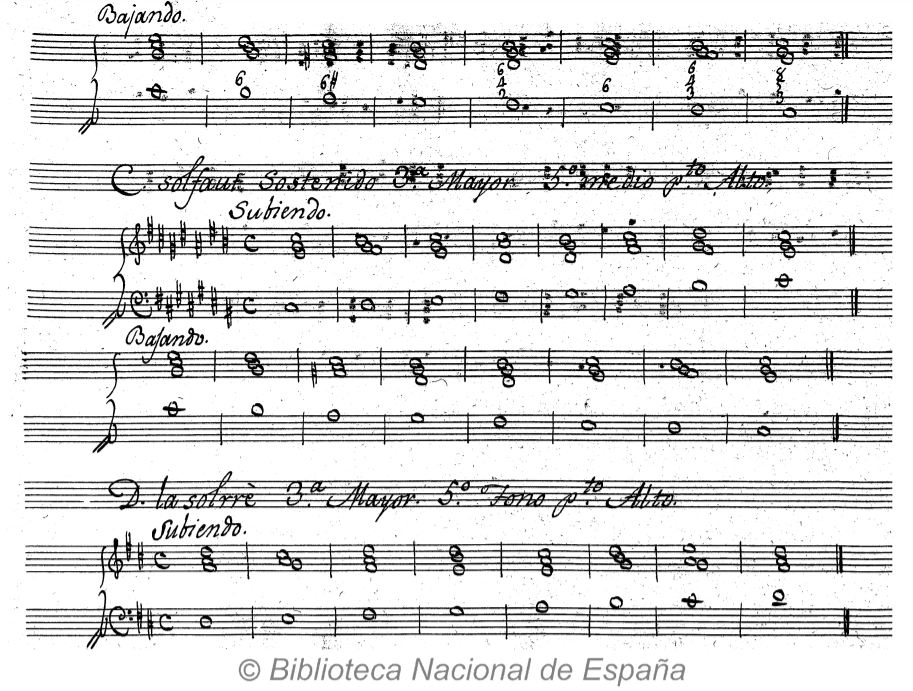 Bajando.
6 6# 6 4 2 6 6 4 3 8 5 3
C. solfaut Sostenido 3.ª Mayor 5.º medio p.to Alto.
Subiendo.
Bajando.
D. la solrrè 3.ª Mayor. 5.º Tono p.to Alto.
Subiendo.
© Biblioteca Nacional de España